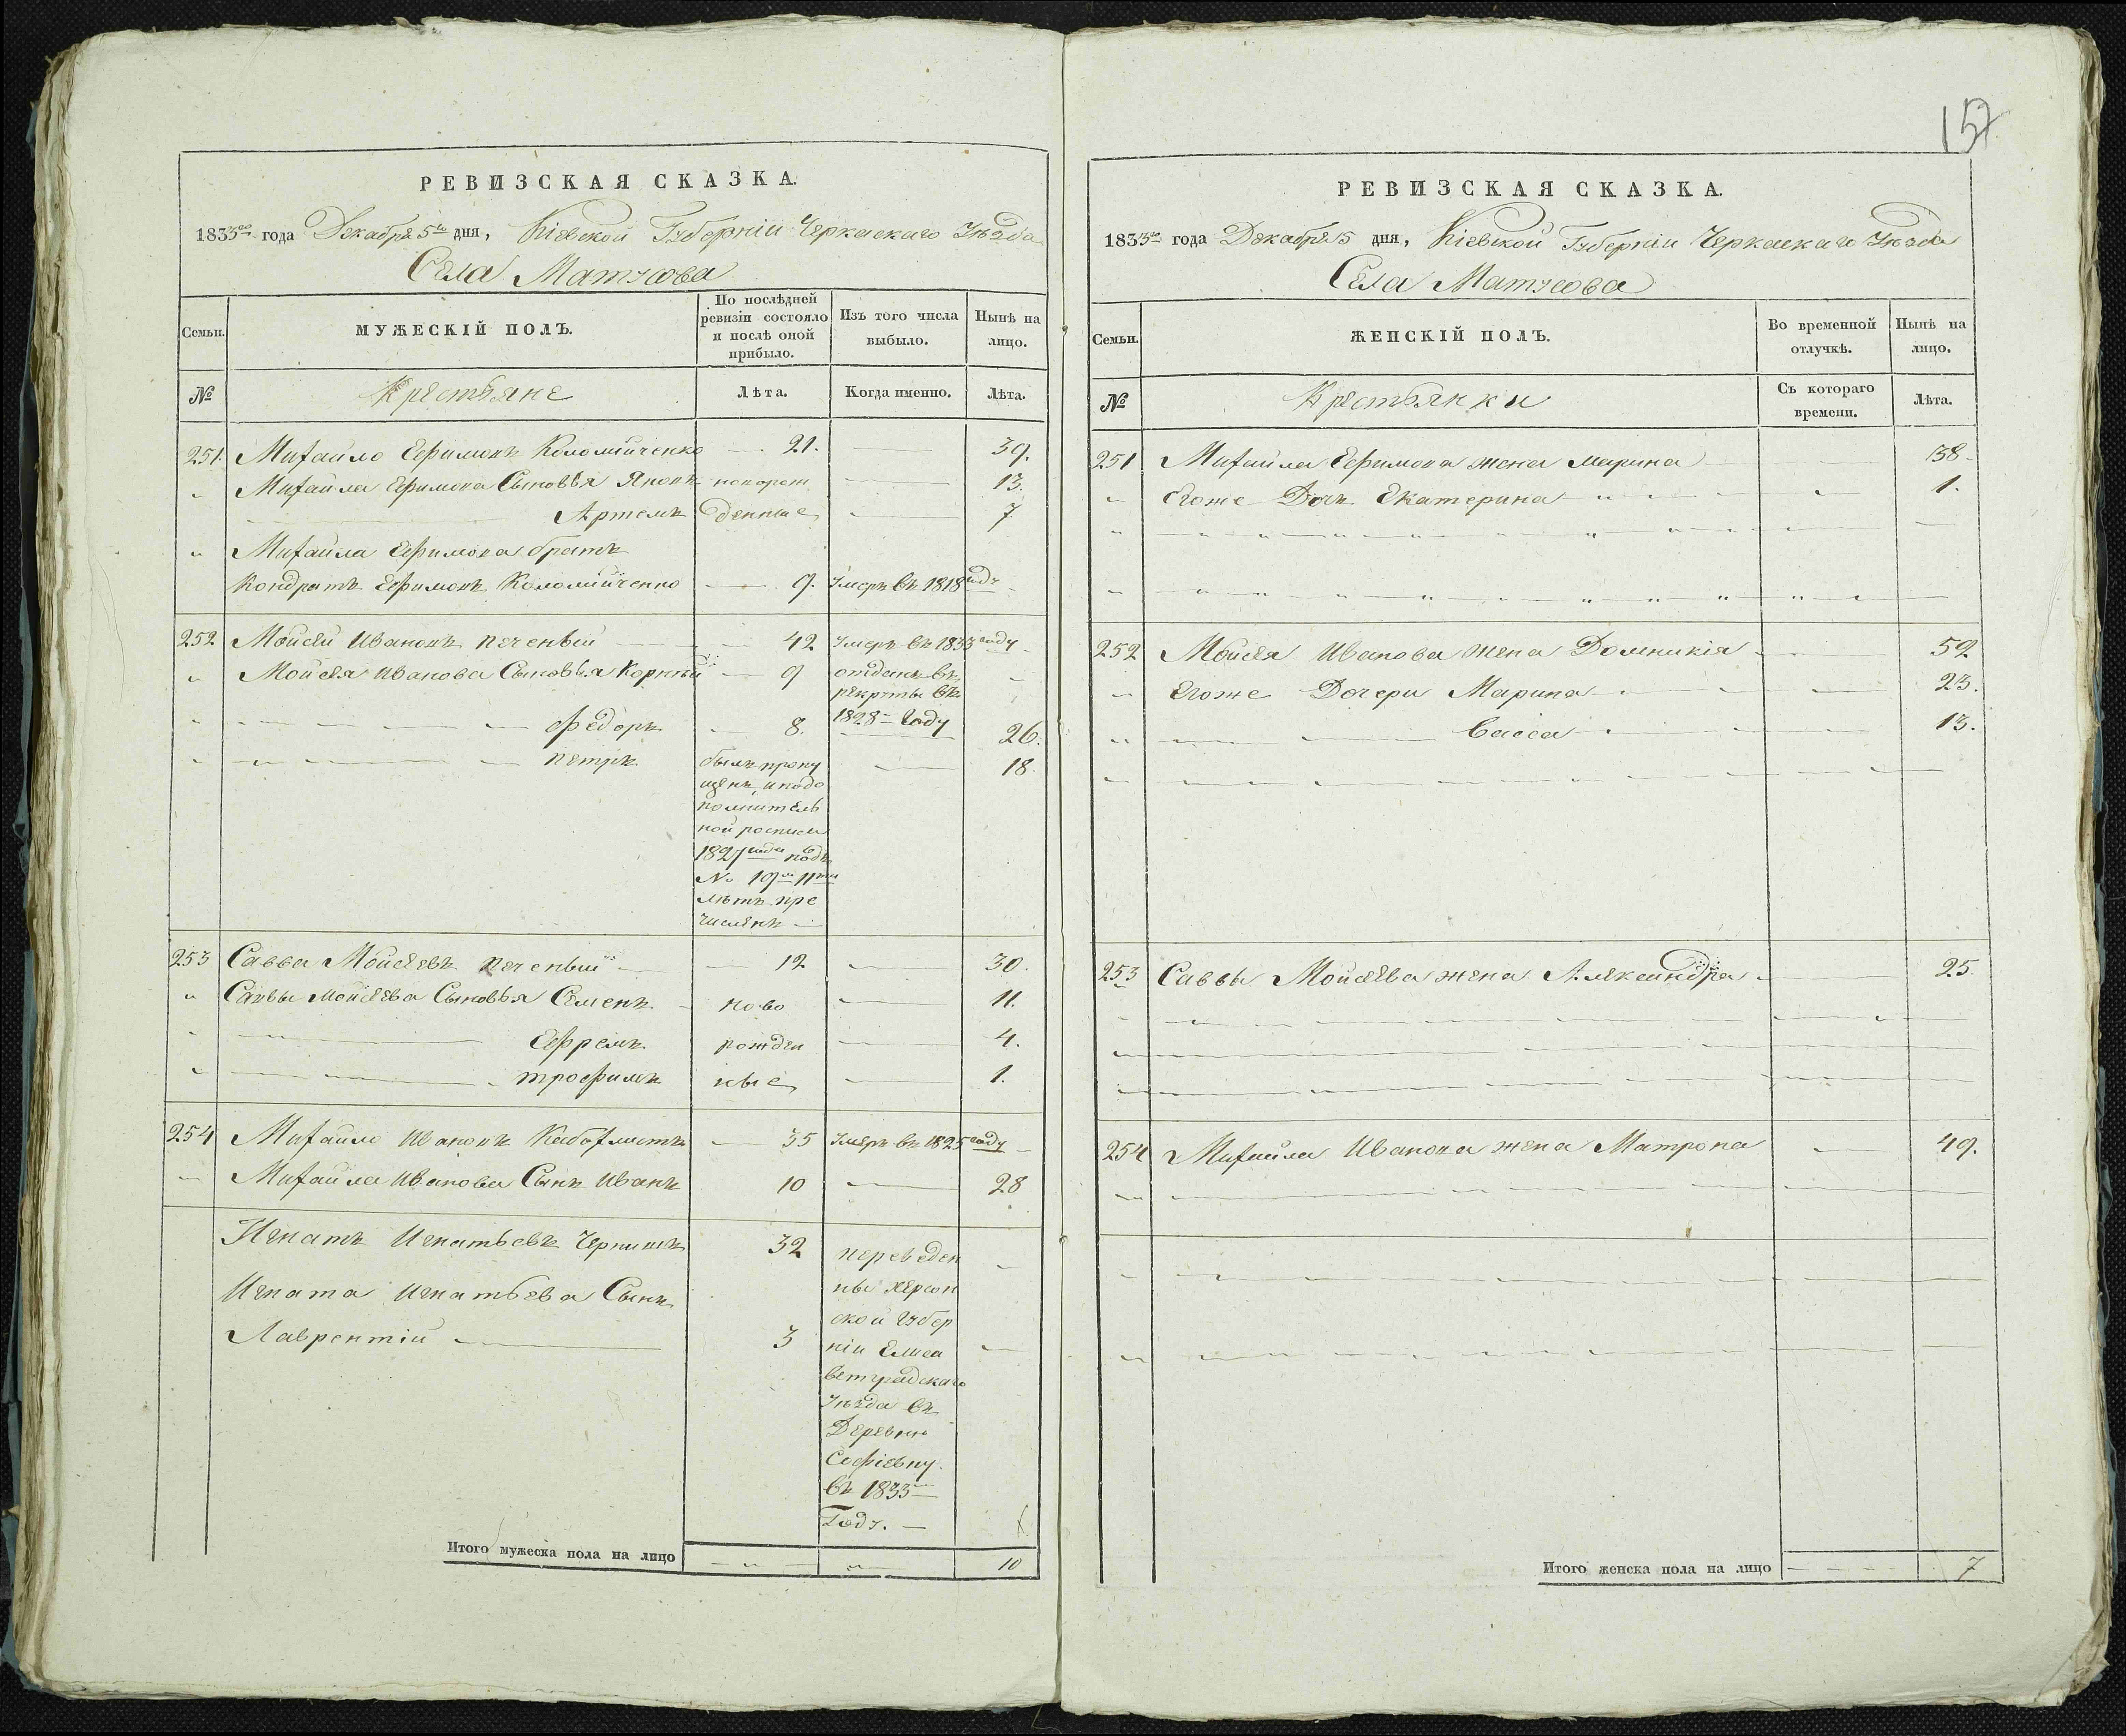 157
РЕВИЗСКАЯ СКАЗКА.
1835го года Декабря 5го дня, Кіевской Губерніи Черкаскаго Уѣзда
Села Матусова
Семьи.
МУЖЕСКІЙ ПОЛЪ.
По послѣдней ревизіи состояло и послѣ оной прибыло.
Изъ того числа выбыло.
Нынѣ на лицо.
№
Крестьяне
Лѣта.
Когда именно.
Лѣта.
251. Михайло Ефимовъ Коломійченко 21. 39.
Михайла Ефимова Сыновья Яковъ новорож 13.
Артемъ денные 7
Михайла Ефимова братъ
Кондратъ Ефимовъ Коломійченко 9. Умеръ въ 1818 году
252 Мойсей Ивановъ Печеный 42 Умеръ въ 1833 году
Мойсея Иванова Сыновья Корнѣй 9 отданъ въ
рекруты въ
1828 Году
Федоръ 8. 26.
Петръ 18.
былъ пропу
щенъ, и по до
полнитель
ной росписи
1827 года подъ
№ 19 11ти
лѣтъ пре
численъ
253 Савва Мойсеевъ Печеный 12 30.
Саввы Мойсеева Сыновья Семенъ ново 11.
Ефремъ рожден 4.
Трофимъ ные 1.
254 Михайло Ивановъ 35 Умеръ въ 1825 году
Михайла Иванова Сынъ Иванъ 10 28
Игнатъ Игнатьевъ Чернишъ 32
Игната Игнатьева Сынъ
Лаврентій 3
переведен
ны Херсон
ской Губер
ніи Елиса
ветградскаго
Уѣзда въ
Деревню
Софіевку
въ 1833
Году.
Итого мужеска пола на лицо 10
РЕВИЗСКАЯ СКАЗКА.
1835го года Декабря 5 дня, Кіевской Губерніи Черкаскаго Уѣзда
Села Матусова
Семьи.
ЖЕНСКІЙ ПОЛЪ.
Во временной отлучкѣ.
Нынѣ на лицо.
№
Крестьянки
Съ котораго времени.
Лѣта.
251 Михайла Ефимова жена Марина 38
Егоже Дочь Екатерина 1.
252 Мойсея Иванова жена Домникія 52
Егоже Дочери Марина 23.
Васса 13.
253 Саввы Мойсеева жена Александра 25.
254 Михайла Иванова жена Матрона 49.
Итого женска пола на лицо 7